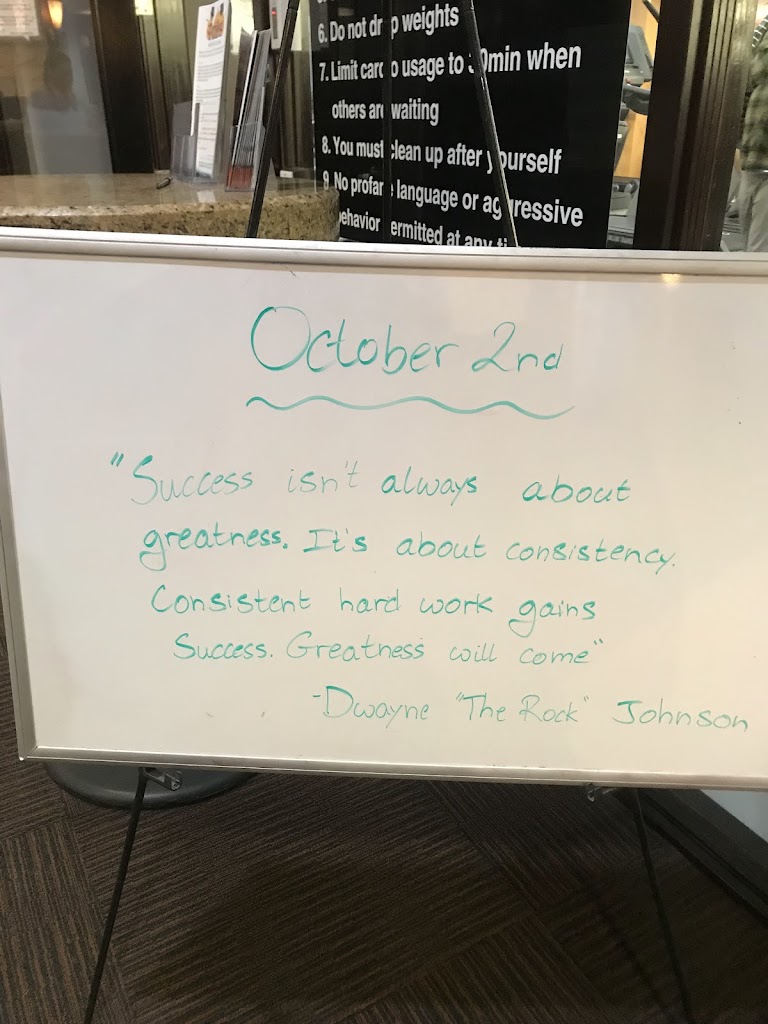 6. Do not drop weights
7. Limit cardio usage to 30min when
others are waiting
8. You must clean up after yourself
9. No profane language or aggressive
behavior permitted at any
October 2nd
"Success isn't always about
greatness. It's about consistency.
Consistent hard work gains
Success. Greatness will come"
-Dwayne "The Rock" Johnson